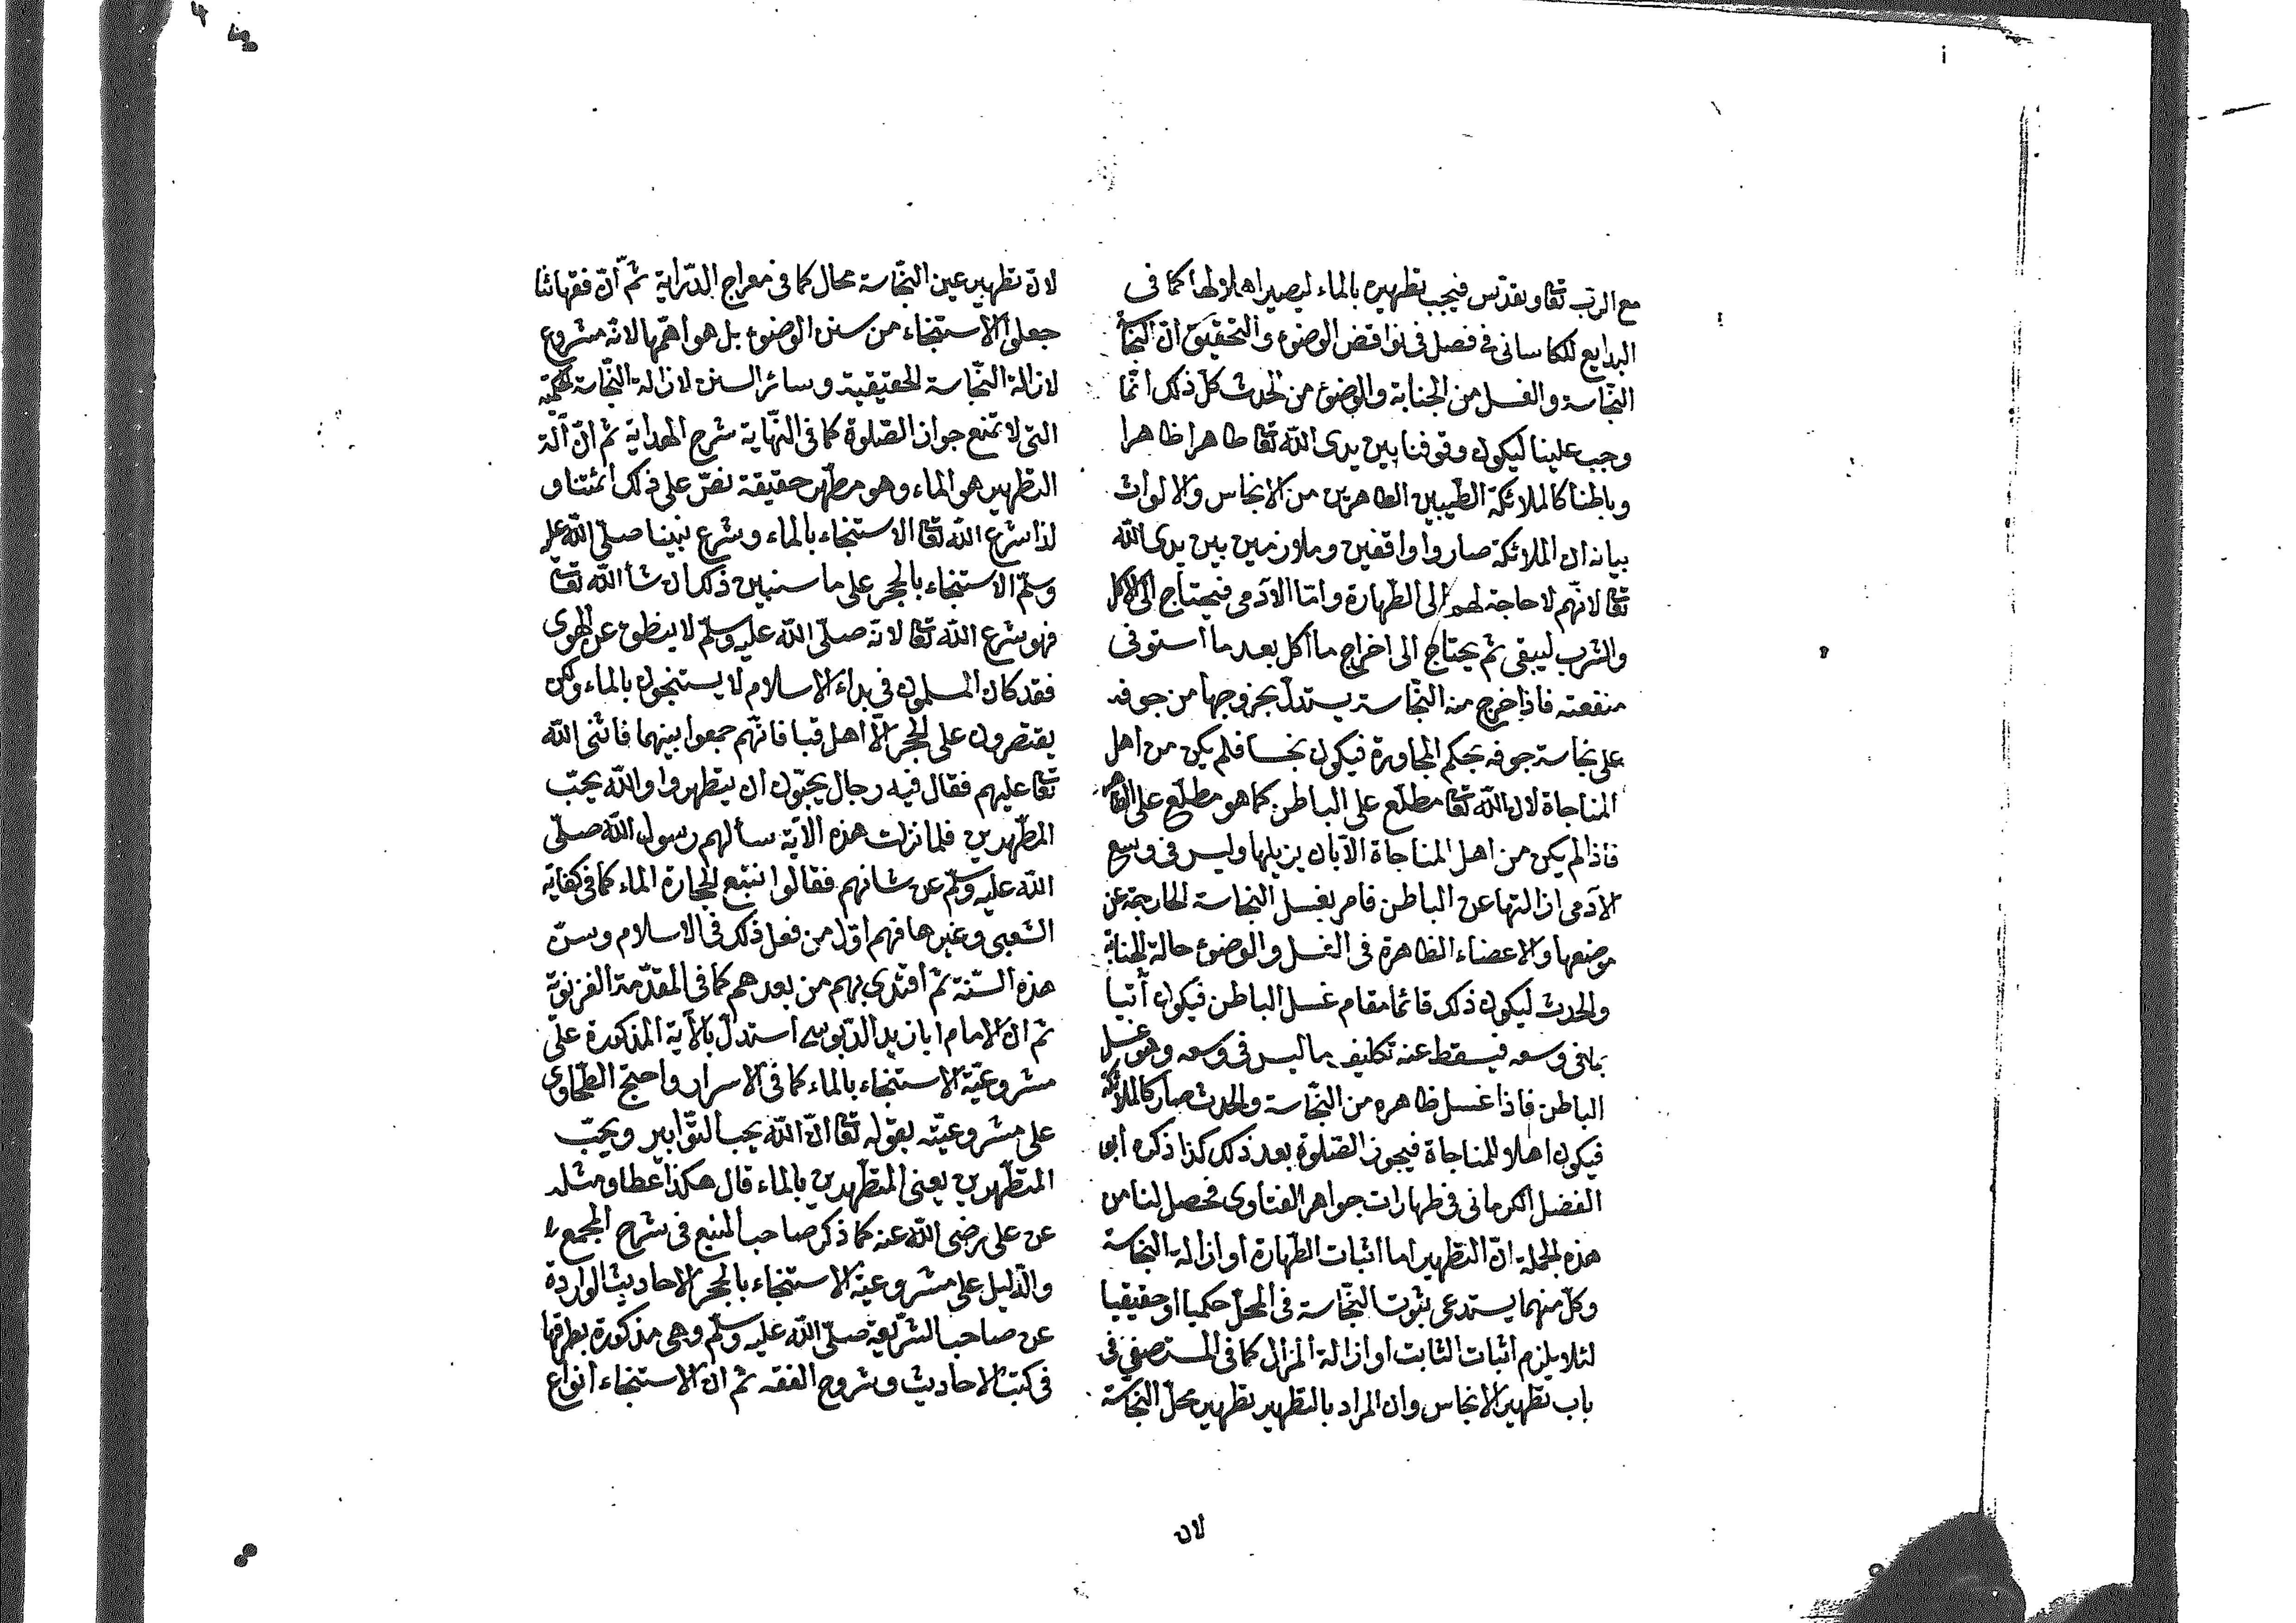 مع الرب تعا وتقدس فيجب تطهيره بالماء ليصير اهلا لها كما فى
البدايع للكاسانى فى فصل فى نواقض الوضوء والتحقيق ان النجاسة
النجاسة والغسل من الجنابة والوضوء من الحدث كل ذلك انما
وجب علينا ليكون وقوفنا بين يدى الله تعا طاهرا ظاهرا
وباطنا كالملائكة الطيبين الطاهرين من الانجاس والالواث
بيانه ان الملائكة صاروا واقفين وملازمين بين يدى الله
تعا لانهم لا حاجة لهم الى الطهارة واما الآدمى فيحتاج الى الاكل
والشرب ليبقى ثم يحتاج الى اخراج ما اكل بعد ما استوفى
منفعته فاذا خرج منه النجاسة يستدل بخروجها من جوفه
على نجاسة جوفه بحكم المجاورة فيكون نجسا فلم يكن من اهل
المناجاة لان الله تعا مطلع على الباطن كما هو مطلع على الظاهر
فاذا لم يكن من اهل المناجاة الا بان يزيلها وليس فى وسع
الآدمى ازالتها عن الباطن فامر بغسل النجاسة الخارجة عن
موضعها والاعضاء الظاهرة فى الغسل والوضوء حالة الجنابة
والحدث ليكون ذلك قائما مقام غسل الباطن فيكون آتيا
بما فى وسعه فيسقط عنه تكليف ما ليس فى وسعه وهو غسل
الباطن فاذا غسل ظاهره من النجاسة والحدث صار كالملائكة
فيكون اهلا للمناجاة فيجوز الصلوة بعد ذلك كذا ذكره ابو
الفضل الكرمانى فى طهارات جواهر الفتاوى فحصل لنا من
هذه الجملة ان التطهير اما اثبات الطهارة او ازالة النجاسة
وكل منهما يستدعى ثبوت النجاسة فى المحل حكميا او حقيقيا
لئلا يلزم اثبات الثابت او ازالة المزال كما فى المستصفى فى
باب تطهير الانجاس وان المراد بالتطهير تطهير محل النجاسة
لان
لان تطهير عين النجاسة محال كما فى معراج الدراية ثم ان فقهائنا
جعلوا الاستنجاء من سنن الوضوء بل هو اهمها لانه مشروع
لازالة النجاسة الحقيقية وسائر السنن لازالة النجاسة الحكمية
التى لا تمنع جواز الصلوة كما فى النهاية شرح الهداية ثم ان آلة
التطهير هو الماء وهو مطهر حقيقة نص على ذلك ائمتنا و
لذا شرع الله تعا الاستنجاء بالماء وشرع نبينا صلى الله عليه
وسلم الاستنجاء بالحجر على ما سنبين ذلك ان شأ الله تعا
فهو شرع الله تعا لانه صلى الله عليه وسلم لا ينطق عن الهوى
فقد كان المسلمون فى بداء الاسلام لا يستنجون بالماء ولكن
يقتصرون على الحجر الا اهل قبا فانهم جمعوا بينهما فاثنى الله
تعا عليهم فقال فيه رجال يحبون ان يتطهروا والله يحب
المطهرين فلما نزلت هذه الآية سألهم رسول الله صلى
الله عليه وسلم عن شانهم فقالوا نتبع الحجارة الماء كما فى كفاية
الشعبى وغيرها فهم اول من فعل ذلك فى الاسلام وسن
هذه السنة ثم اقتدى بهم من بعدهم كما فى المقدمة الغزنوية
ثم ان الامام ابا زيد الدبوسى استدل بالآية المذكورة على
مشروعية الاستنجاء بالماء كما فى الاسرار واحتج الطحاوى
على مشروعيته بقوله تعا ان الله يحب التوابين ويحب
المتطهرين يعنى المتطهرين بالماء قال هكذا عطا ومثله
عن على رضى الله عنه كما ذكر صاحب المنبع فى شرح المجمع
والدليل على مشروعية الاستنجاء بالحجر الاحاديث الواردة
عن صاحب الشريعة صلى الله عليه وسلم وهى مذكورة بطرقها
فى كتب الاحاديث وشروح الفقه ثم ان الاستنجاء انواع